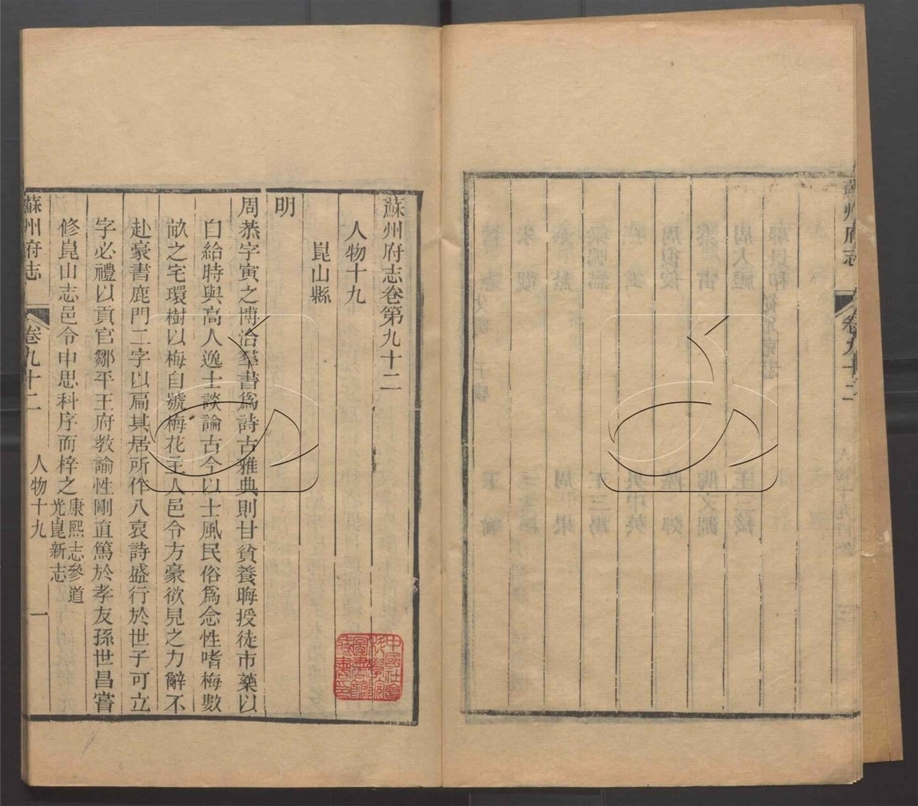 蘇州府志卷第九十二
人物十九
崑山縣
明
周恭字寅之博洽羣書爲詩古雅典則甘貧養晦授徒市藥以
自給時與高人逸士談論古今以士風民俗爲念性嗜梅數
畝之宅環樹以梅自號梅花主人邑令方豪欲見之力辭不
赴豪書鹿門二字以扁其居所作八哀詩盛行於世子可立
字必禮以貢官鄒平王府教諭性剛直篤於孝友孫世昌嘗
修崑山志邑令申思科序而梓之康熙志參道
光崑新志
蘇州府志
卷九十二
人物十九
一
蘇州府志
卷九十二